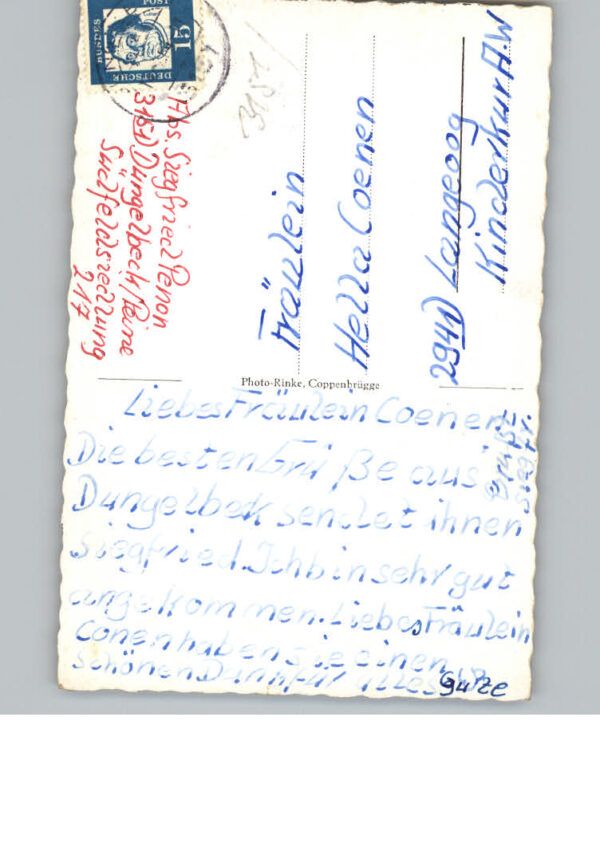 DEUTSCHE
BUNDES
POST
15
3151
Abs. Siegfried Penon
3151 Düngelbeck/Peine
Suedfeldsiedlung
217
Fräulein
Hella Coenen
2941 Langeoog
Kinderkur A.W
Photo-Rinke, Coppenbrügge
Liebes Fräulein Coenen
Die besten Grüße aus
Dungelbek sendet ihnen
Siegfried. Ich bin sehr gut
angekommen. Liebes Fräulein
Conen haben sie einen
schönen Dank für alles
gutze